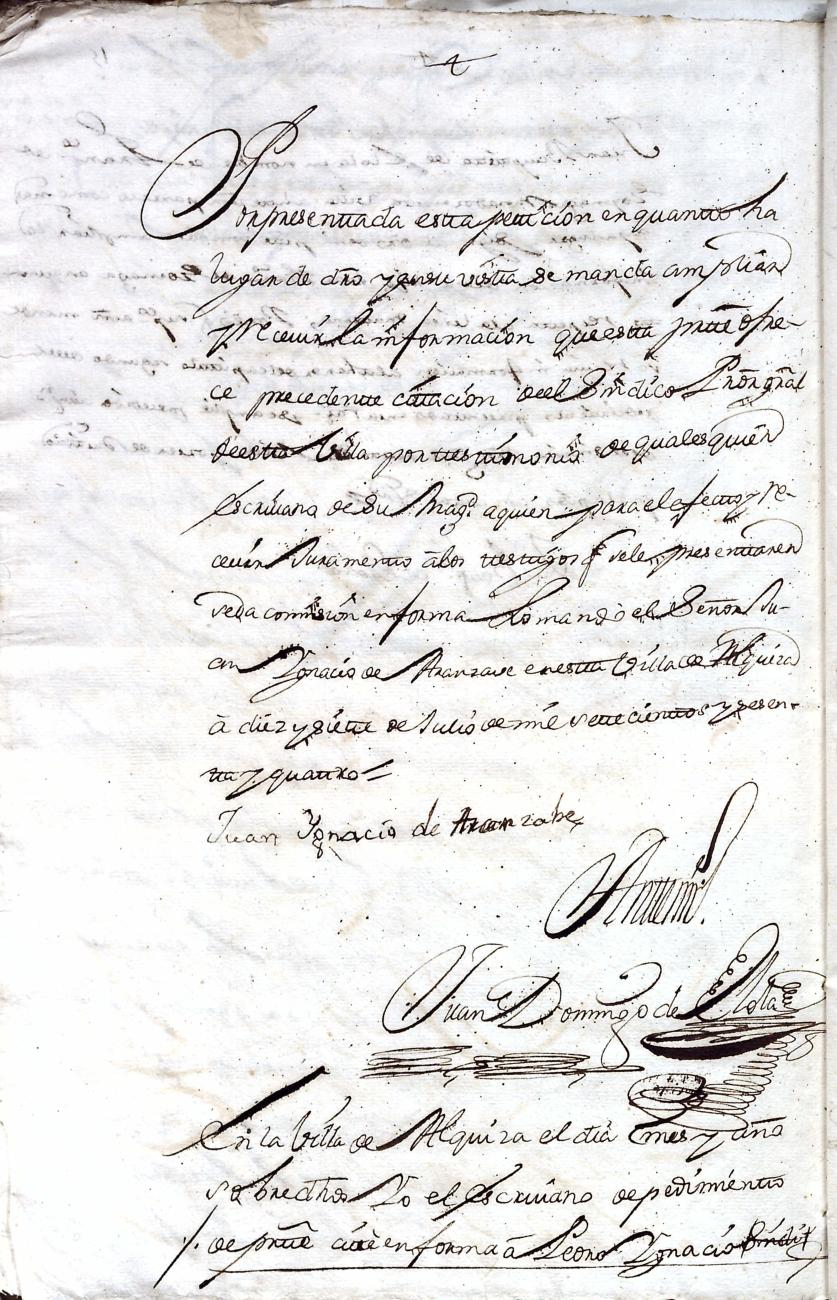 4
Por presenttada estta petticion en quantto ha
lugar de dro y en su vistta se manda ampliar
y Recevir la informacion que estta partte ofre-
ce precedentte cittacion de el Sindico Pror gral
de estta Villa por testtimonio de qualesquier
escrivano de Su Magd. a quien para el efectto y re-
cevir Juramentto â los testtigos q se le presenttaren
se da comision en forma Lo mandò el Señor Ju-
an Ygnacio de Aranzave en estta Villa de Alquiza
â diez y siette de Julio de mil settecienttos y sesen-
tta y quattro =
Juan Ygnacio de Aranzabe
Antte mi
Juan Domingo de
En la Villa de Alquiza el dia mes y año
sobredhos Yo el escrivano de pedimientto
de partte citè en forma â Pedro Ygnacio